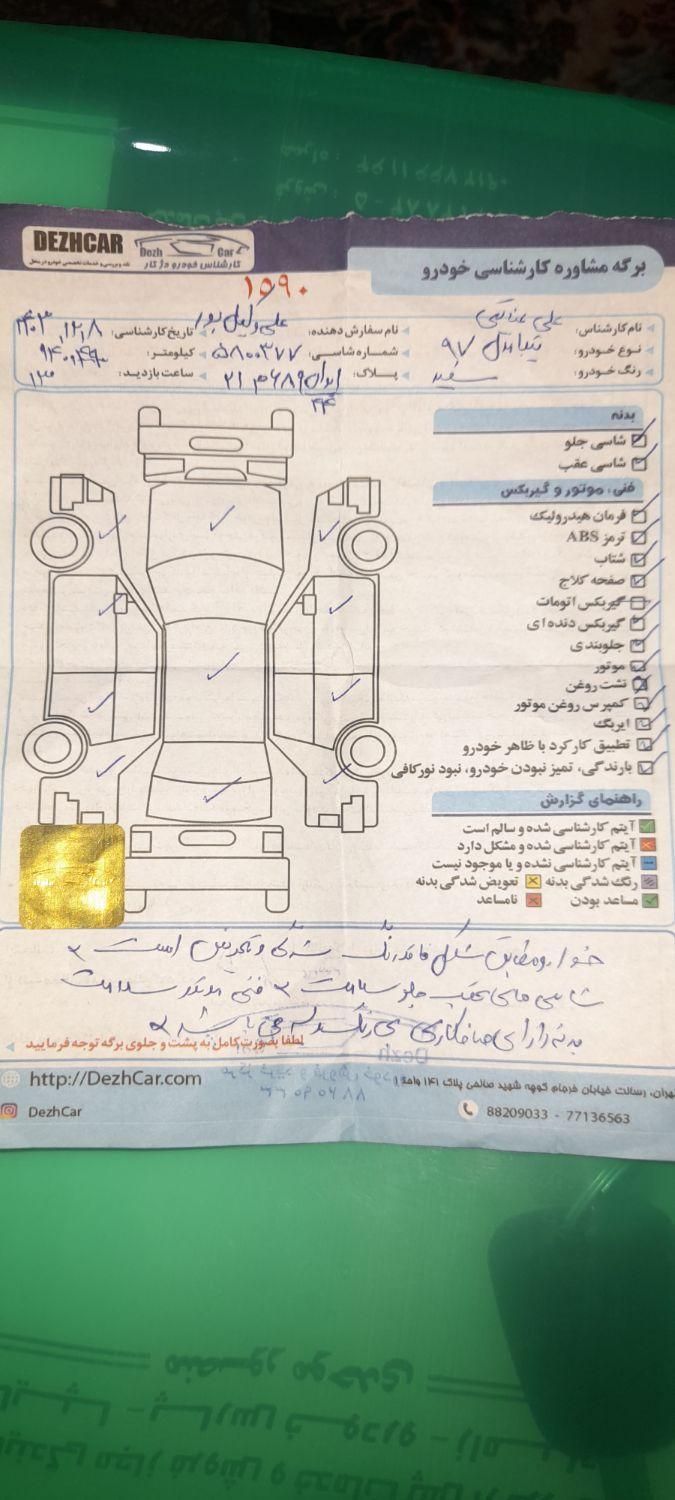 DEZHCAR
Dezh Car
کارشناس خودرو دژکار
برگه مشاوره کارشناسی خودرو
۱۵۹۰
نام کارشناس: علی
نام سفارش دهنده: علی وکیل پور
تاریخ کارشناسی: ۴۰۳,۱۲,۸
نوع خودرو: تیبا مدل ۹۷
شماره شاسی: ۵۸۰۰۳۷۷
کیلومتر:
رنگ خودرو: سفید
پلاک: ایران ۴۴
ساعت بازدید: ۱۳
بدنه
شاسی جلو
شاسی عقب
فنی، موتور و گیربکس
فرمان هیدرولیک
ترمز ABS
شتاب
صفحه کلاچ
گیربکس اتومات
گیربکس دنده ای
جلوبندی
موتور
نشت روغن
کمپرس روغن موتور
ایربگ
تطبیق کارکرد با ظاهر خودرو
بارندگی، تمیز نبودن خودرو، نبود نورکافی
راهنمای گزارش
آیتم کارشناسی شده و سالم است
آیتم کارشناسی شده و مشکل دارد
آیتم کارشناسی نشده و یا موجود نیست
رنگ شدگی بدنه
تعویض شدگی بدنه
مساعد بودن
نامساعد
خودرو مطابق شکل فاقد رنگ شدگی و تعویض است
شاسی های عقب جلو سلامت فنی موتور سلامت
بدنه دارای صافکاری بی رنگ می باشد
لطفا بصورت کامل به پشت و جلوی برگه توجه فرمایید
http://DezhCar.com
تهران، رسالت خیابان فرجام کوچه شهید صالحی پلاک ۱۴۱ واحد ۱
DezhCar
88209033 - 77136563